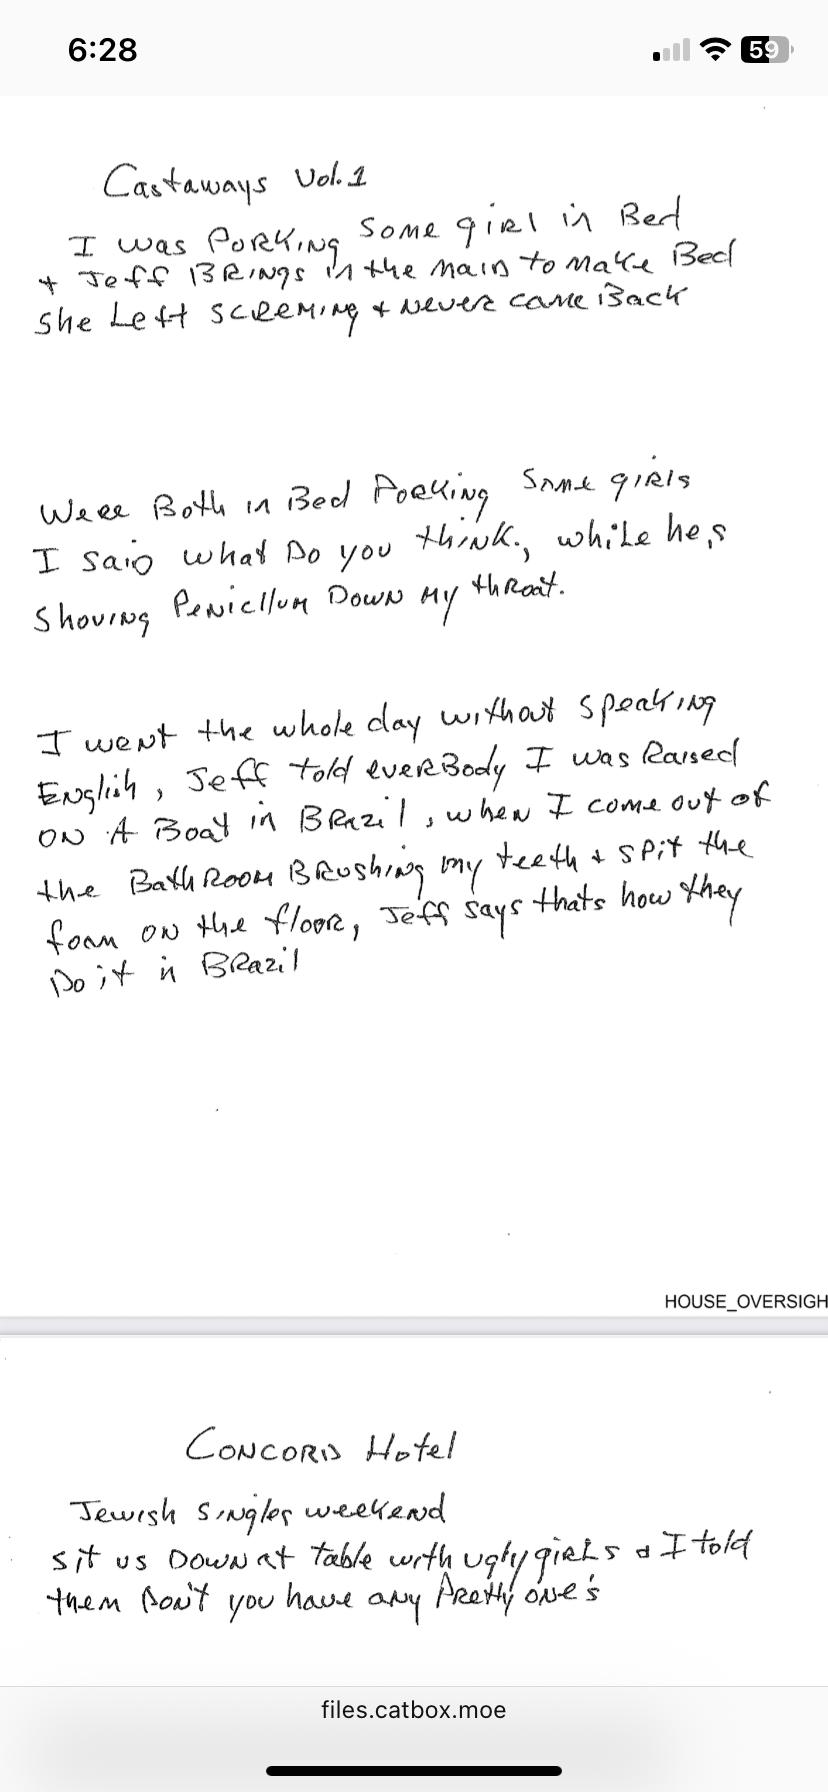 6:28
59
Castaways Vol. 1
I was PORKING Some girl in Bed
+ Jeff BRings in the maid to make Bed
She Left screming + Never came Back
Were Both in Bed Porking Some girls
I said what Do you think., while he,s
Shoving Penicllum Down My throat.
I went the whole day without speaking
English, Jeff told everBody I was Raised
ON A Boat in BRazil, when I come out of
the BathRoom BRushing my teeth + spit the
foam on the floor, Jeff says thats how they
Do it in BRazil
HOUSE_OVERSIGH
CONCORD Hotel
Jewish Singles weekend
sit us DOWN at table with ugly girls & I told
them Don't you have any Pretty one's
files.catbox.moe